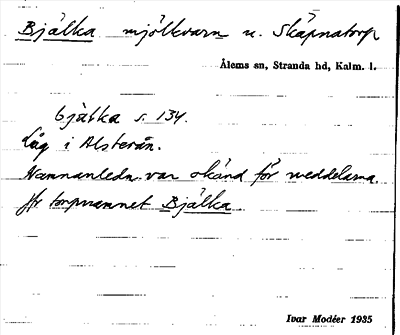 Bjälka mjölkvarn u. Skäpnatorp
Ålems sn, Stranda hd, Kalm. l.
bjälka s. 134.
Låg i Alsterån.
Namnanledn. var okänd för meddelarna.
Jfr torpnamnet Bjälka.
Ivar Modéer 1935